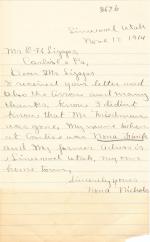 Sinerwood Utah
Nove. 17, 1914
Mr. O. H. Lipps
Carlisle Pa,
Dear Mr. Lipps
I received your letter and
also the and many
thanks, know I didnt
know that Mr. Friedman
was gone, My name when
at Carlisle was Nona
and My former adress is
Utah, my own
house
Sincerely yours
Nona Nichols